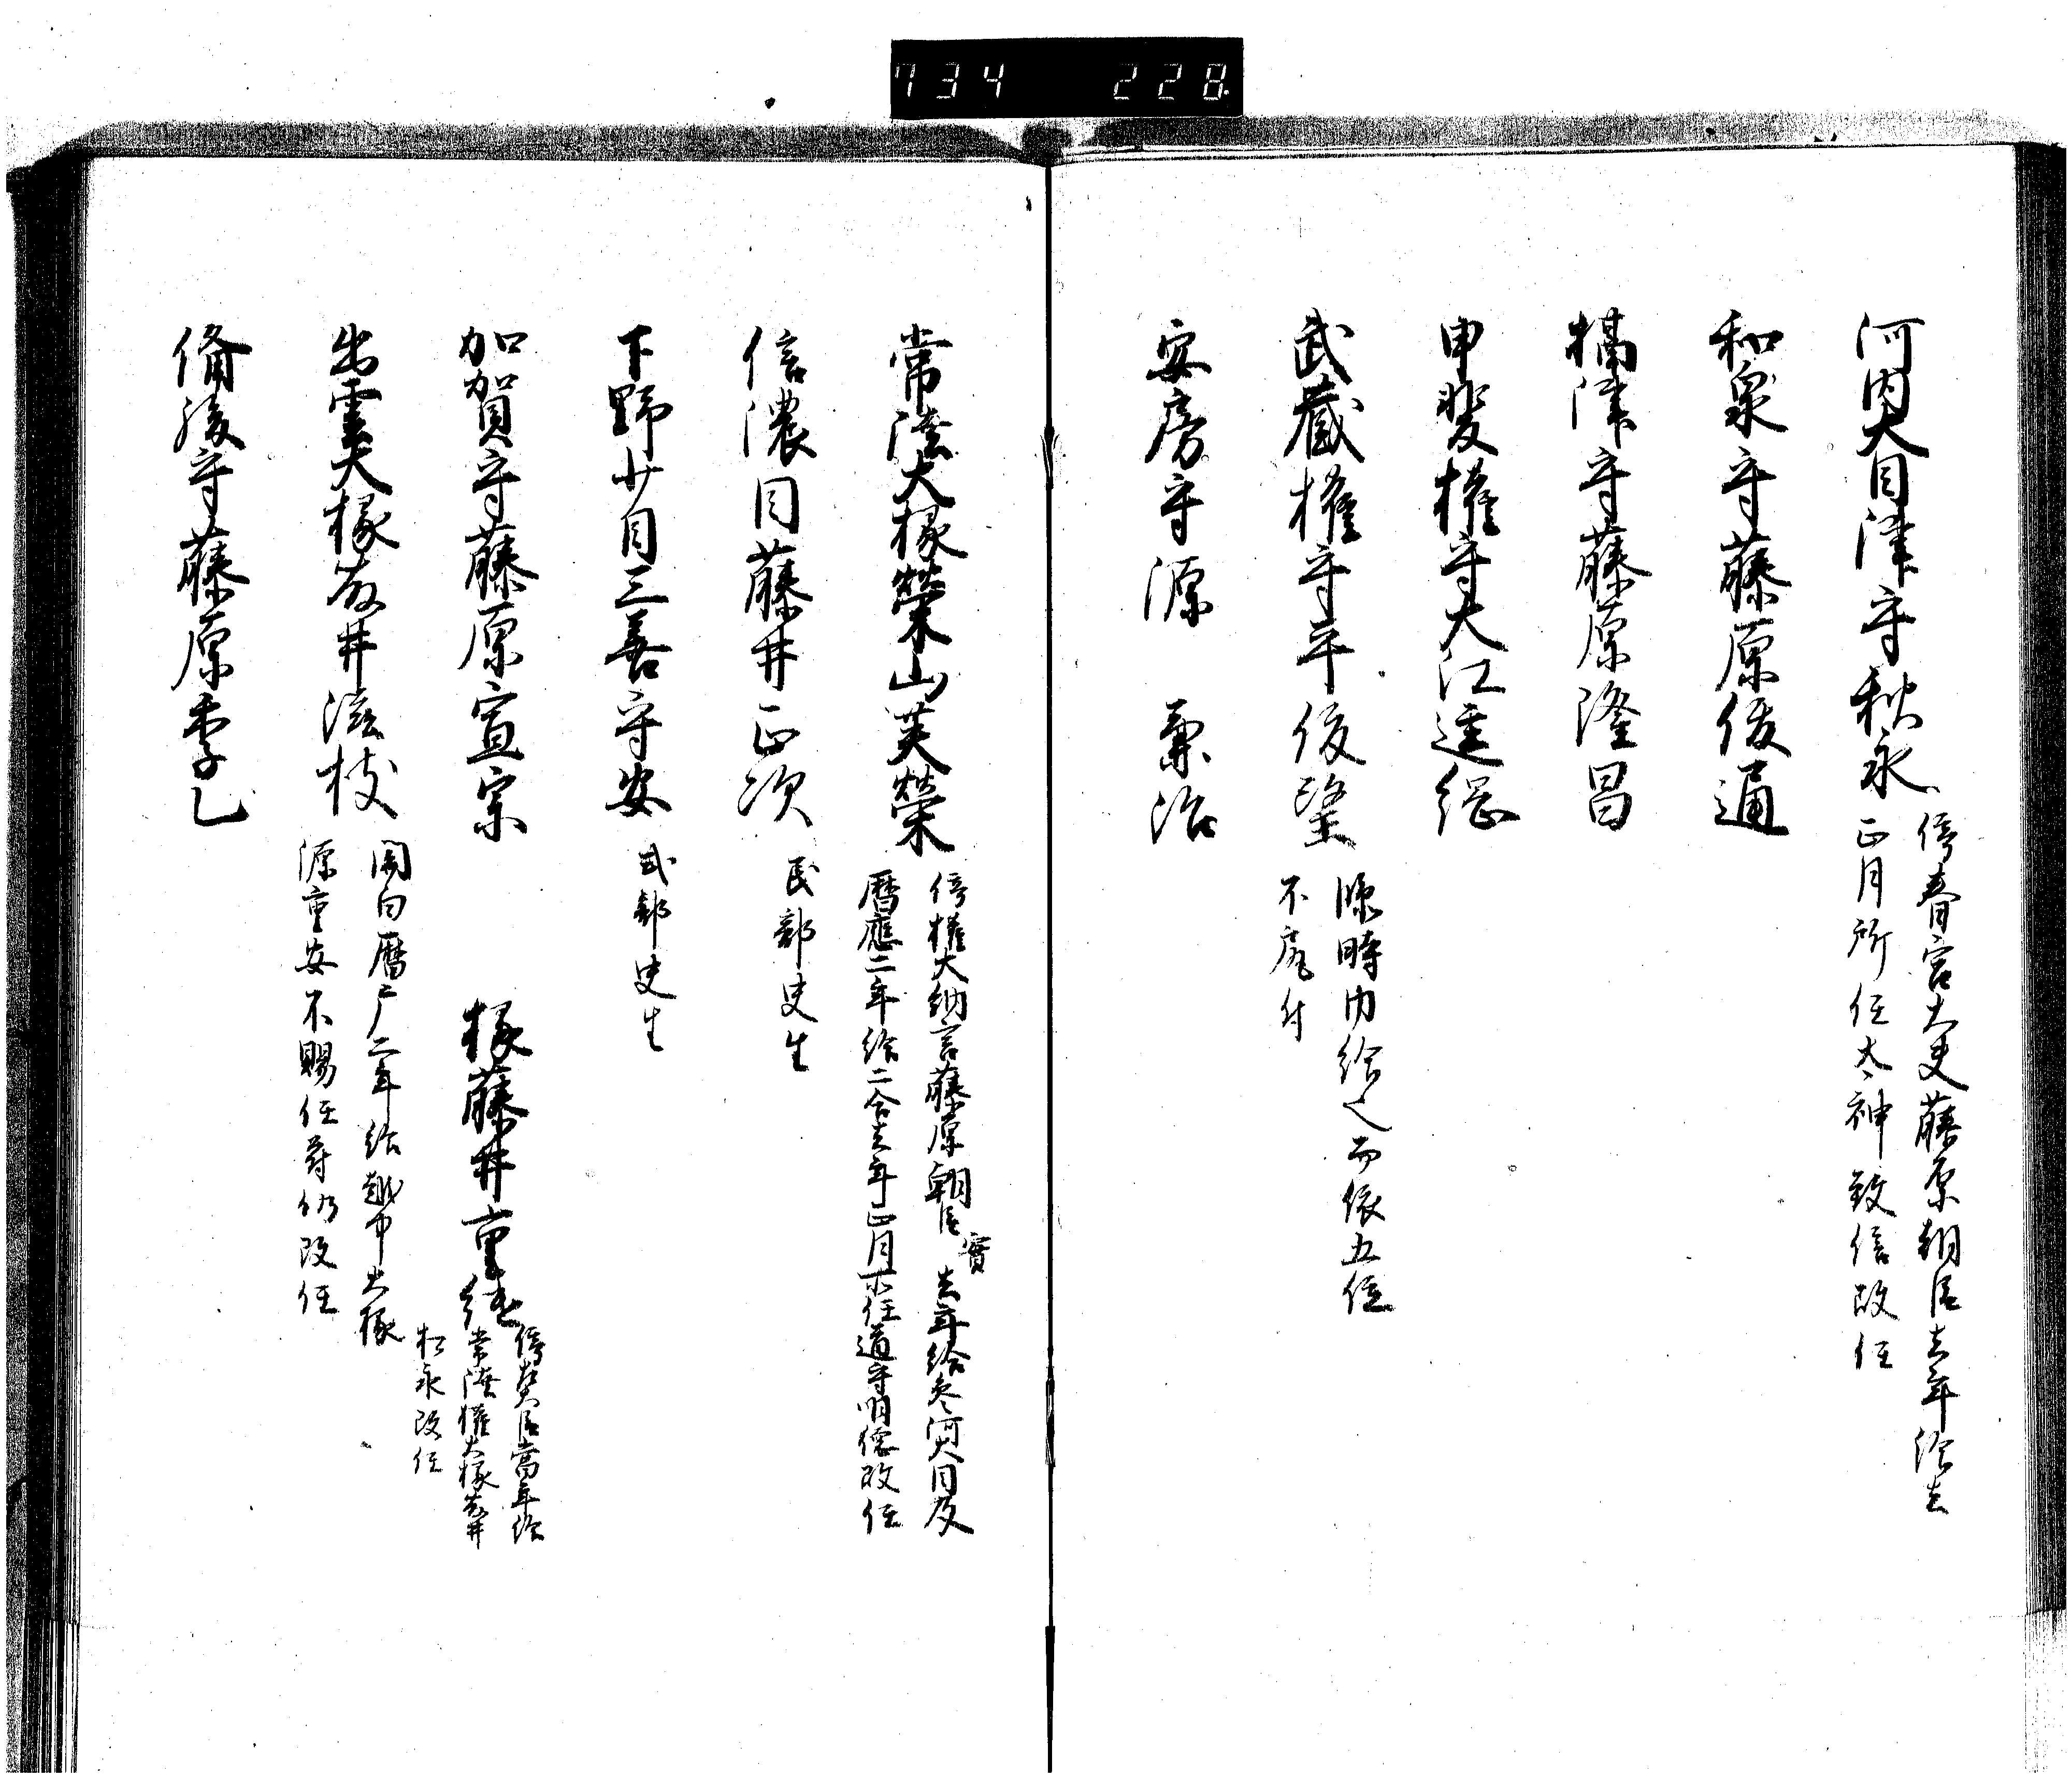 734 228
河内大目津守秋永
停春宮大夫藤原朝臣去年給去
正月所任大神致信改任
和泉守藤原俊通
摂津守藤原隆昌
甲斐権守大江遠綱
武蔵権守平俊望
臨時内給之而依五位
不尻付
安房守源兼治
常陸大掾榮山芙榮
停権大納言藤原朝臣實去年給参河大目及
暦應二年給二合去年正月不任道守明徳改任
信濃目藤井正次
民部史生
下野少目三善守安
式部史生
加賀守藤原宣宗
掾藤井重続
停質臣當年給
常陸権大掾藤井
松永改任
出雲大掾藤井滋枝
関白暦广二年給越中大掾
源重安不賜任符仍改任
備後守藤原季